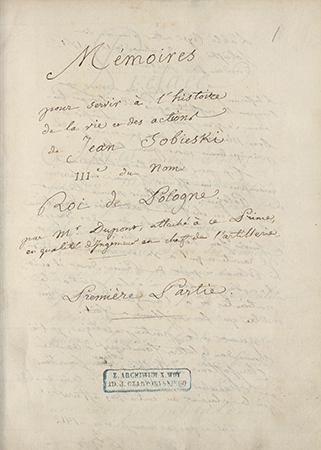 1
Mémoires
pour servir à l'histoire
de la vie e des actions
de Jean Sobieski
IIIe du Nom
Roi de Pologne
par Mr Dupont, attaché à ce Prince,
en qualité d'Ingenieur en chef de l'artillerie
Première Partie.
Z ARCHIWUM X. WOY
AD. J. CZARTORYSKIEGO